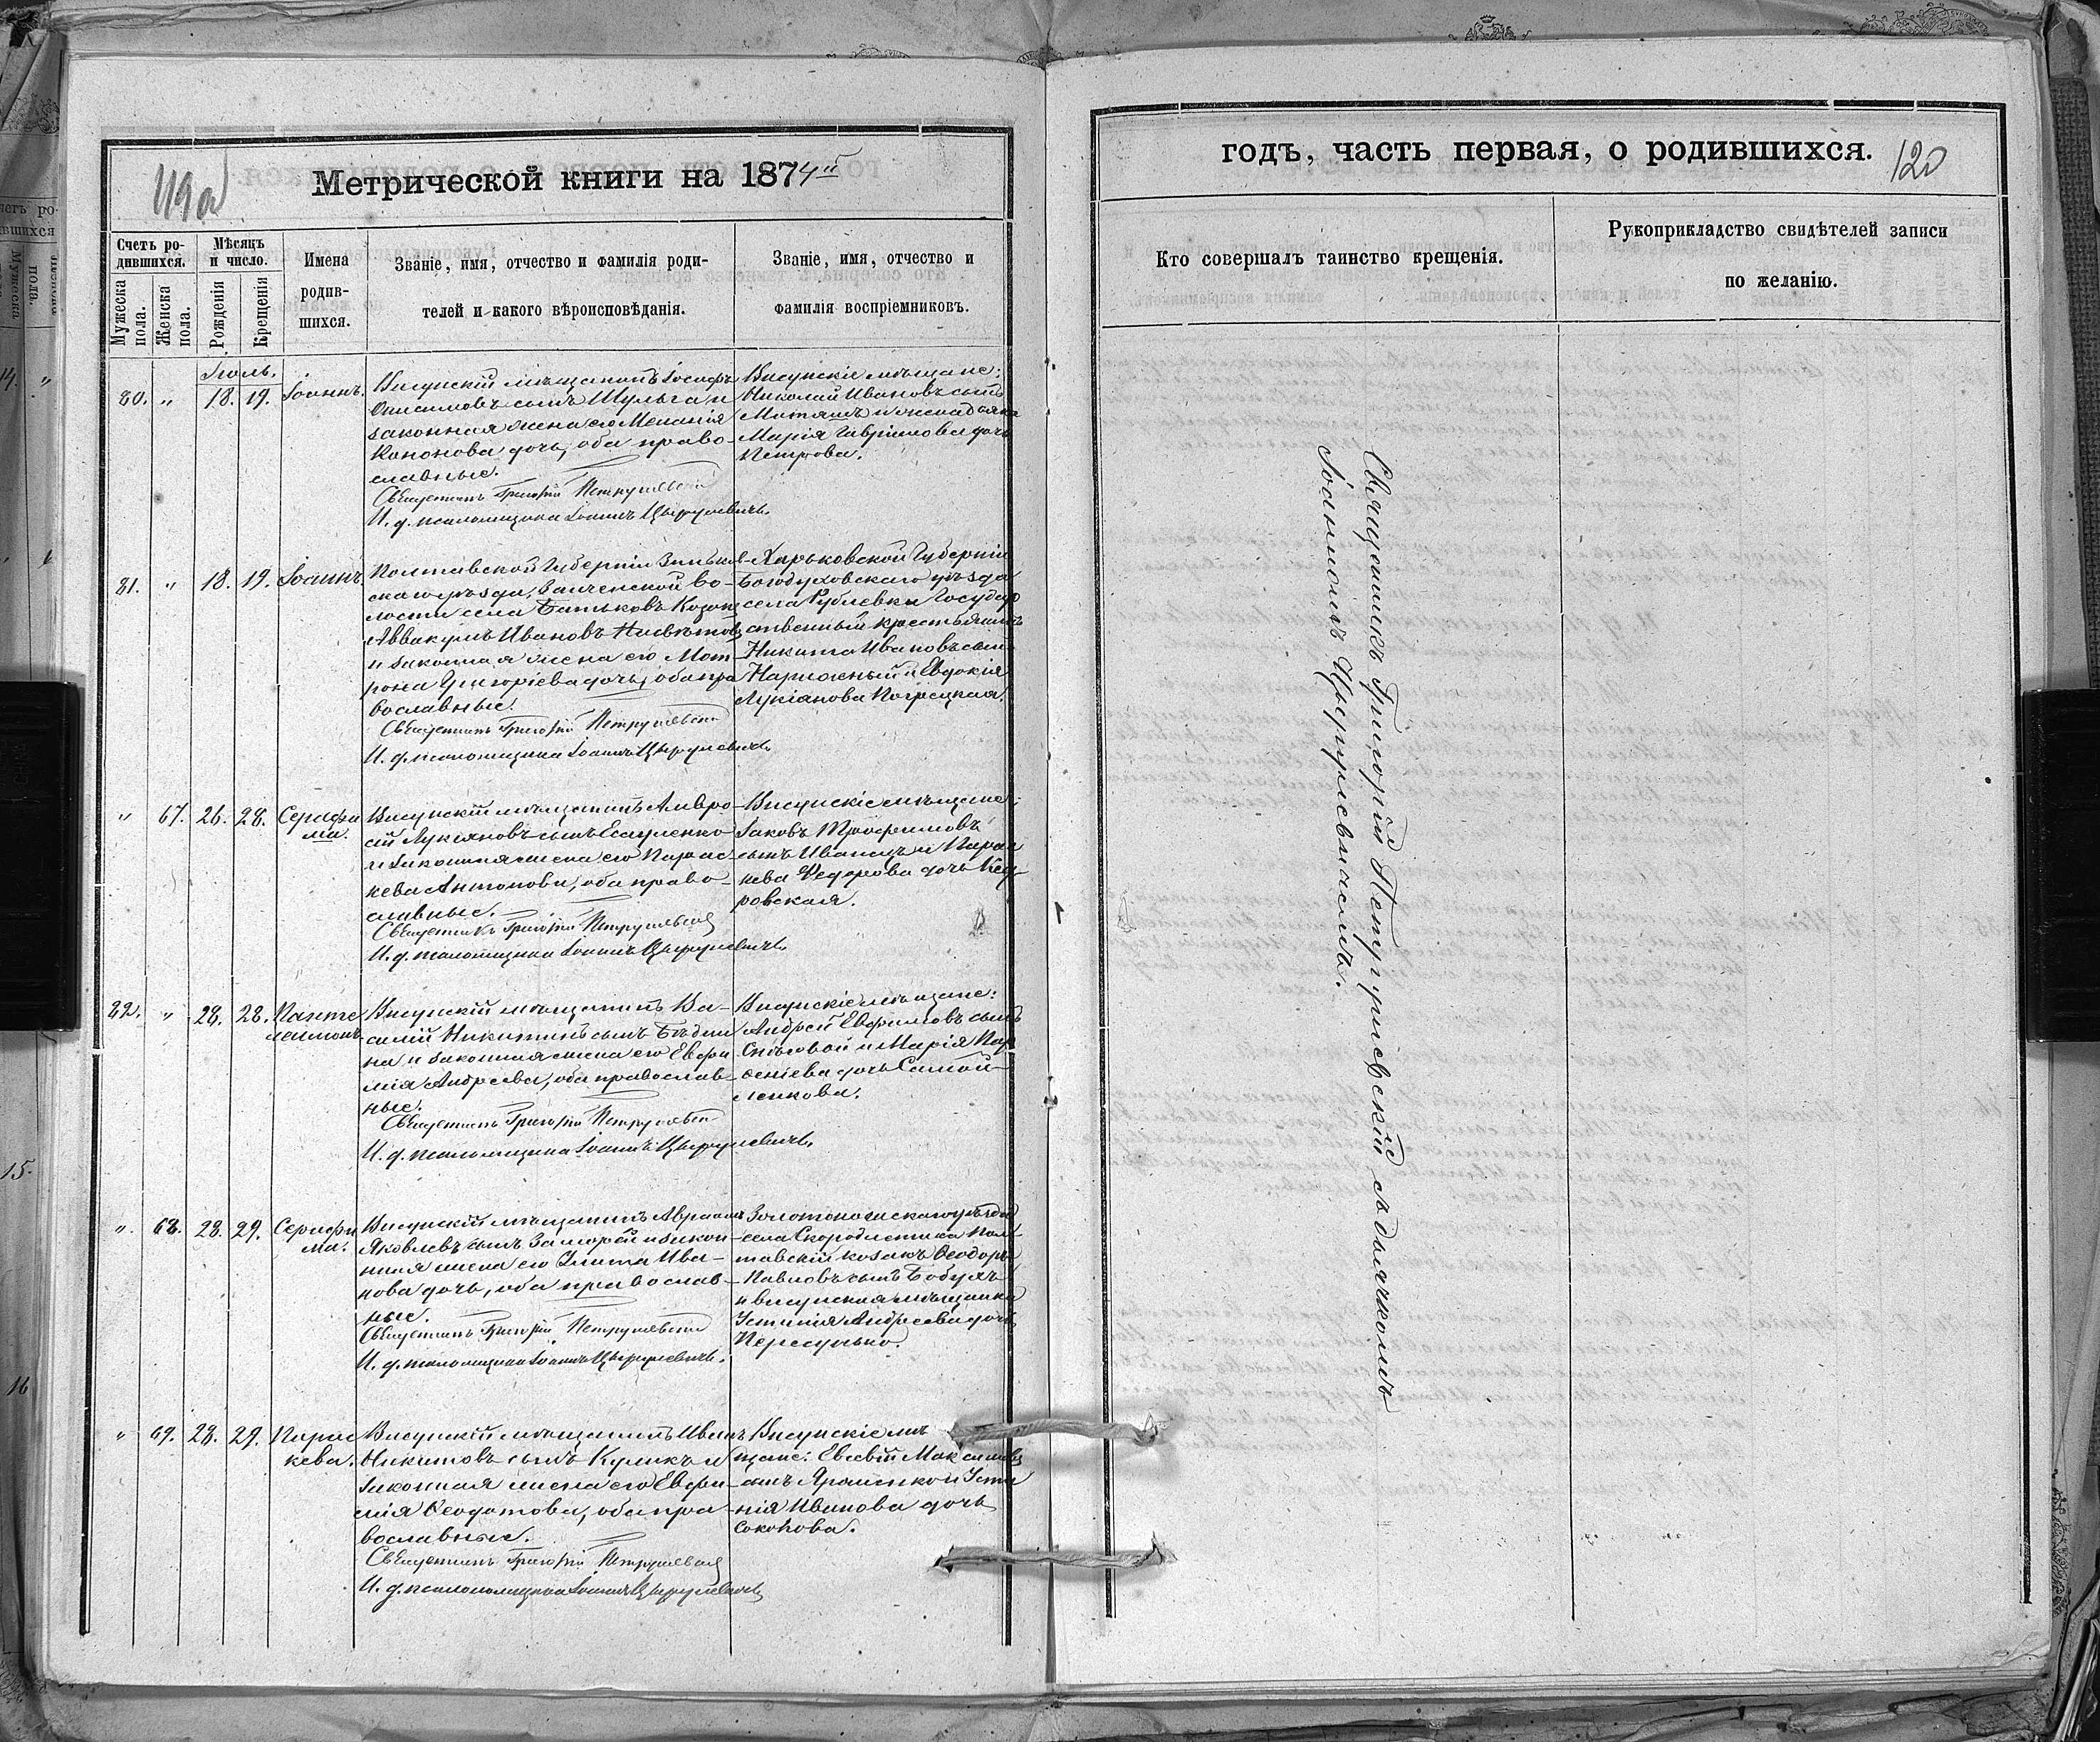 119 об
Метрической книги на 1874й
Счетъ ро-
дившихся.
Мѣсяцъ
и число.
Мужеска
пола.
Женска
пола.
Рожденія
Крещенія
Имена
родив-
шихся.
Званіе, имя, отчество и фамилія роди-
телей и какого вѣроисповѣданія.
Званіе, имя, отчество и
фамилія воспріемниковъ.
Іюль.
80. " 18. 19. Іоаннъ.
Висунскій мѣщанинъ Іосифъ
Онисимовъ сынъ Шульга и
законная жена его Меланія
Кононова дочь, оба право-
славные.
Священникъ Григорій Петрушевскій
И. д. псаломщика Іоаннъ Цѣрулевичъ.
Висунскіе мѣщане:
Николай Ивановъ сынъ
Матяшъ и
Марія Гавріилова дочь
Петрова.
81. " 18. 19. Іоаннъ
Полтавской Губерніи Зиньков-
скаго уѣзда, во-
лости села Батьковъ Козакъ
Аввакумъ Ивановъ
и законная жена его Мат-
рона Григоріева дочь, оба пра-
вославные.
Священникъ Григорій Петрушевскій
И. д. псаломщика Іоаннъ Цѣрулевичъ.
Харьковской Губерніи
Богодуховскаго уѣзда
села Рублевки Государ
ственный крестьянинъ
Никита Ивановъ сынъ
Нарожный и Евдокія
Лукіанова Погрецкая.
" 67. 26. 28. Серафи
ма.
Висунскій мѣщанинъ Амвро-
сій Лукіяновъ сынъ Есауленко
и законная жена его Парас-
кева Антонова, оба право-
славные.
Священникъ Григорій Петрушевскій
И. д. псаломщика Іоаннъ Цѣрулевичъ.
Висунскіе мѣщане:
Іаковъ Трофимовъ
сынъ Иваницъ и Парас
кева Федорова дочь Кед-
ровская.
82. " 28. 28. Панте
леимонъ.
Висунскій мѣщанинъ Ва-
силій Никитинъ сынъ Бѣдни
на и законная жена его Евфи
мія Андреева, оба православ-
ные.
Священникъ Григорій Петрушевскій
И. д. псаломщика Іоаннъ Цѣрулевичъ.
Висунскіе мѣщане:
Андрей Евфимовъ сынъ
Сниговой и Марія Пар
ѳеніева дочь Самой-
ленкова.
". 68. 28. 29. Серафи
ма.
Висунскій мѣщанинъ Авраамъ
Яковлевъ сынъ Заморей и закон
ная жена его Улита Ива-
нова дочь, оба православ-
ные.
Священникъ Григорій Петрушевскій
И. д. псаломщика Іоаннъ Цѣрулевичъ.
Золотоношскаго уѣзда
села Скородистика Пол-
тавскій козакъ Ѳеодоръ
Павловъ сынъ Бобухъ
и висунская мѣщанка
Устинія Андреева дочь
Пересунько.
" 69. 28. 29. Парас
кева.
Висунскій мѣщанинъ Иванъ
Никитовъ сынъ Куликъ и
законная жена его Евфи-
мія Ѳеодотова, оба пра-
вославные.
Священникъ Григорій Петрушевскій
И. д. псаломщика Іоаннъ Цѣрулевичъ.
Висунскіе мѣ
щане: Евсевій Максимовъ
сынъ Ярошенко и Усти
нія Иванова дочь
Соколова.
годъ, часть первая, о родившихся.
120
Кто совершалъ таинство крещенія.
Рукоприкладство свидѣтелей записи
по желанію.
Священникъ Григорій Петрушевскій съ дьячкомъ
Іоанномъ Цѣрулевичемъ.